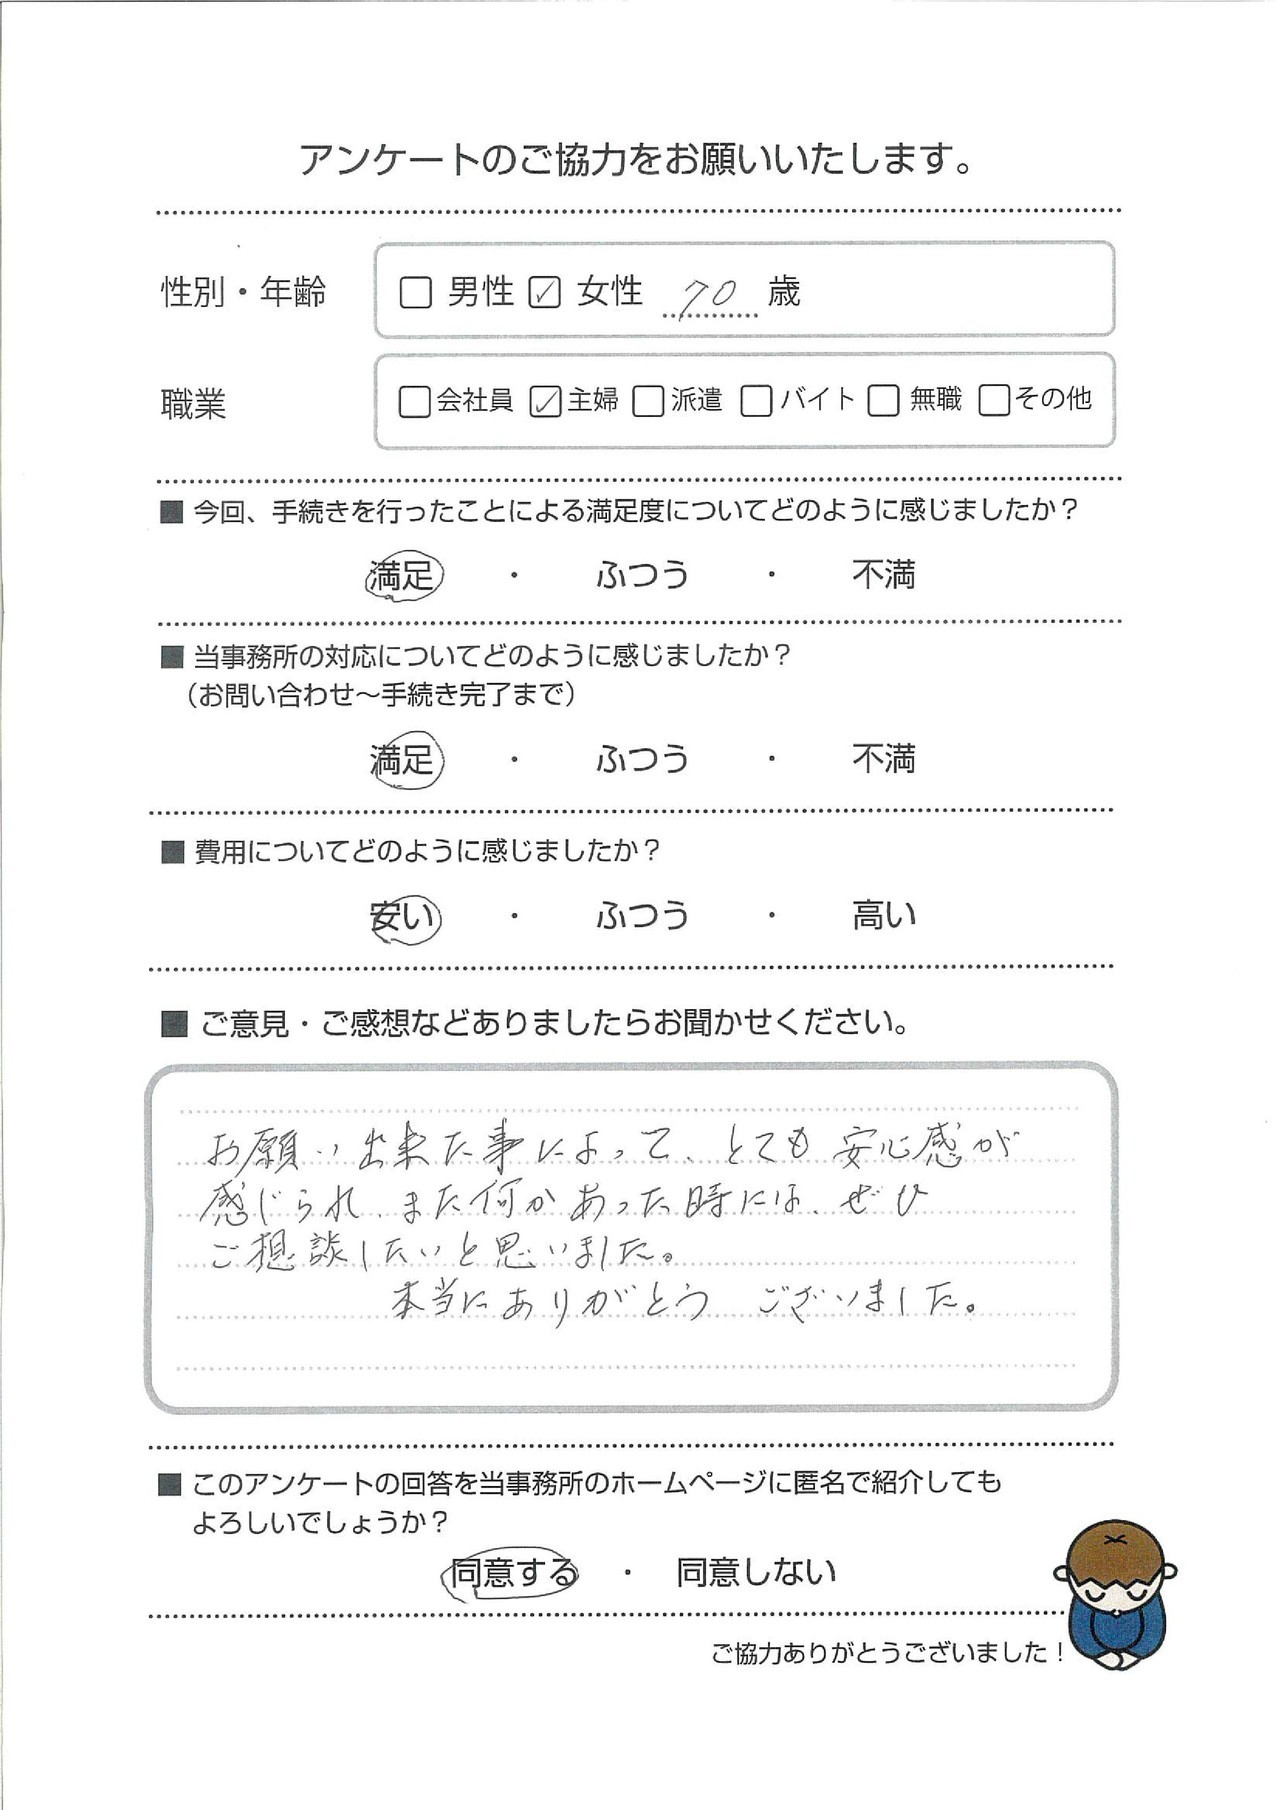 アンケートのご協力をお願いいたします。
性別・年齢 □ 男性 ☑ 女性 70 歳
職業 □会社員 ☑主婦 □派遣 □バイト □ 無職 □その他
■ 今回、手続きを行ったことによる満足度についてどのように感じましたか？
満足 ・ ふつう ・ 不満
■ 当事務所の対応についてどのように感じましたか？
（お問い合わせ～手続き完了まで）
満足 ・ ふつう ・ 不満
■ 費用についてどのように感じましたか？
安い ・ ふつう ・ 高い
■ ご意見・ご感想などありましたらお聞かせください。
お願い出来た事によって、とても安心感が
感じられ、また何かあった時には、ぜひ
ご相談したいと思いました。
本当にありがとう ございました。
■ このアンケートの回答を当事務所のホームページに匿名で紹介しても
よろしいでしょうか？
同意する ・ 同意しない
ご協力ありがとうございました！